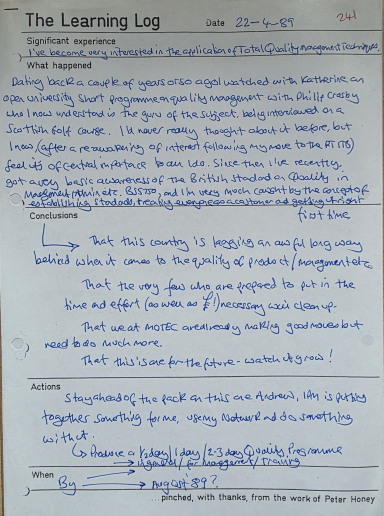 The Learning Log Date 22-4-89 241
Significant experience
I've become very interested in the application of Total Quality Management Techniques.
What happened
Dating back a couple of years or so ago I watched with Katherine an
open university short programme on quality management with Philip Crosby
who I now understand is the guru of the subject, being interviewed on a
Scottish Golf course. I'd never really thought about it before, but
I now, (after a reawakening of interest following my move to the
feel its of central importance to all I do. Since then I've recently
got a very basic awareness of the British standard on Quality in
Management/Admin etc. BS5750, and I'm very much caught by the concept of
establishing standards, treating everyone as a customer and getting it right
first time
Conclusions
That this country is lagging an awful long way
behind when it comes to the quality of product/management etc
That the very few who are prepared to put in the
time and effort (as well as £!) necessary will clean up.
That we at MOTEC are already making good moves but
need to do much more.
That this is one for the future - watch it grow!
Actions
Stay ahead of the pack on this one Andrew, Ian is putting
together something for me, use my Network and do something
with it.
Produce a ½day/1day/2-3day Quality Programme
in general/for management/Training
When
By August '89?
...pinched, with thanks, from the work of Peter Honey